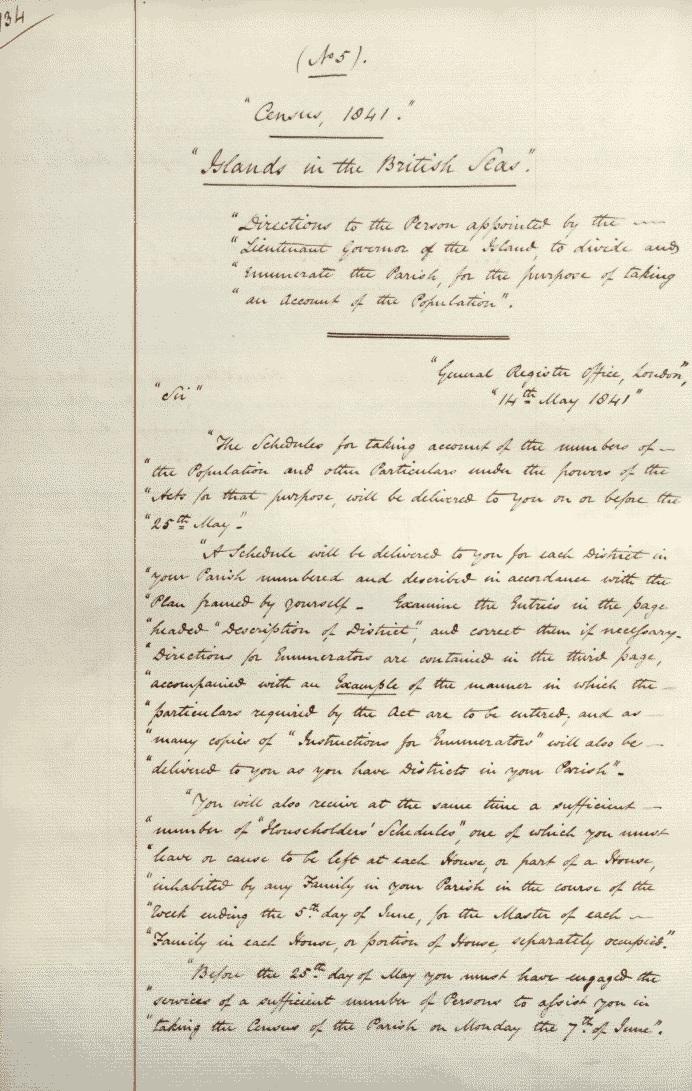 134
(No 5).
"Census, 1841."
"Islands in the British Seas".
"Directions to the Person appointed by the —
"Lieutenant Governor of the Island, to divide and
"Enumerate the Parish, for the purpose of taking
"an Account of the Population".
"General Register Office, London",
"Sir"
"14th May 1841"
"The Schedules for taking account of the numbers of —
"the Population and other Particulars under the powers of the
"Acts for that purpose, will be delivered to you on or before the
"25th May".
"A Schedule will be delivered to you for each District in
"your Parish numbered and described in accordance with the
"Plan framed by yourself — Examine the Entries in the page
"headed "Description of District", and correct them if necessary.
"Directions for Enumerators are contained in the third page,
"accompanied with an Example of the manner in which the —
"particulars required by the Act are to be entered; and as —
"many copies of "Instructions for Enumerators" will also be —
"delivered to you as you have Districts in your Parish".
"You will also receive at the same time a sufficient —
"number of "Householders' Schedules", one of which you must
"leave or cause to be left at each House, or part of a House,
"inhabited by any Family in your Parish in the course of the
"Week ending the 5th day of June, for the Master of each —
"Family in each House, or portion of House, separately occupied."
"Before the 25th day of May you must have engaged the
"services of a sufficient number of Persons to assist you in
"taking the Census of the Parish on Monday the 7th of June".